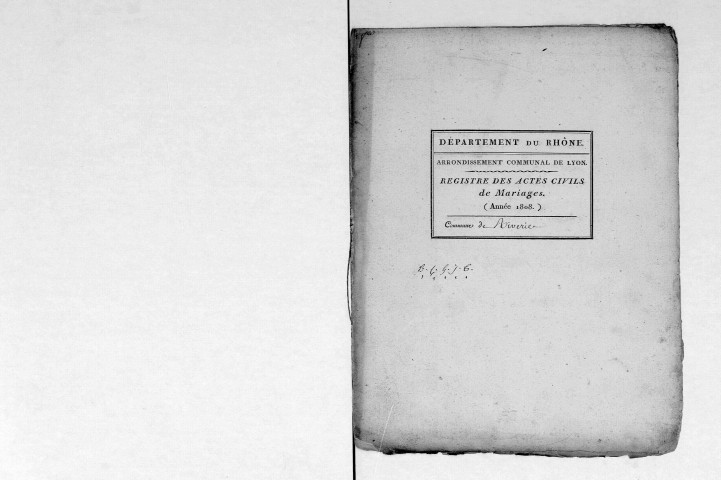 DÉPARTEMENT DU RHÔNE.
ARRONDISSEMENT COMMUNAL DE LYON.
REGISTRE DES ACTES CIVILS
de Mariages.
( Année 1808. )
Commune de Riverie